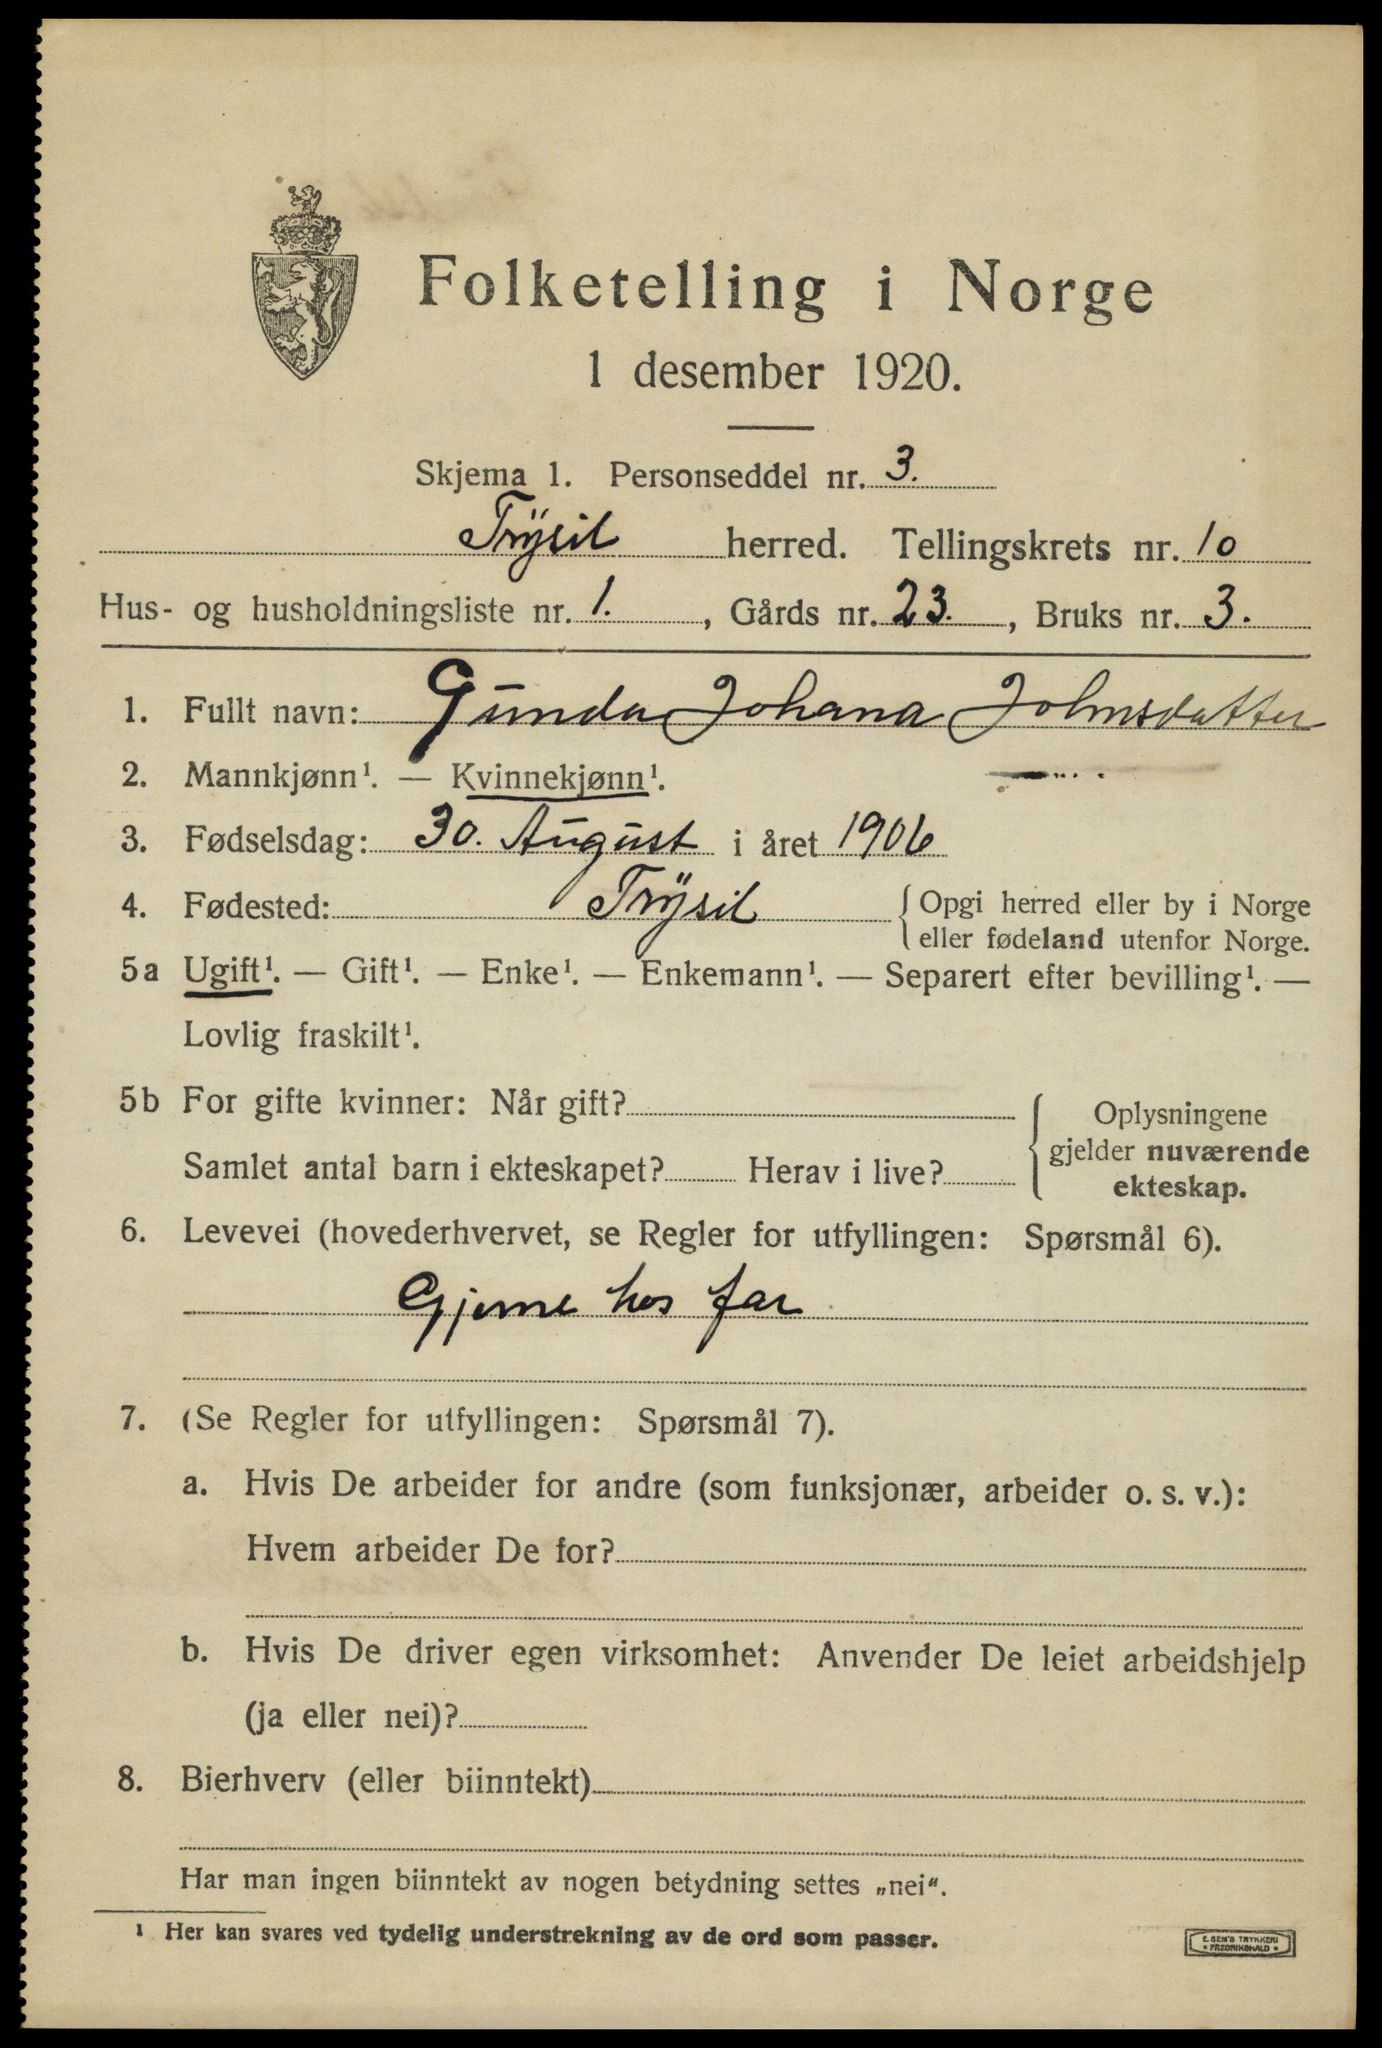 Folketelling i Norge
1 desember 1920.
Skjema 1. Personseddel nr. 3.
Trysil herred. Tellingskrets nr. 10
Hus- og husholdningsliste nr. 1. , Gårds nr. 23. , Bruks nr. 3.
1. Fullt navn: Gunda Johana Johnsdatter
2. Mannkjønn¹. — Kvinnekjønn¹.
3. Fødselsdag: 30. August i året 1906
4. Fødested: Trysil { Opgi herred eller by i Norge
eller fødeland utenfor Norge.
5a Ugift¹. — Gift¹. — Enke¹. — Enkemann¹. — Separert efter bevilling¹. —
Lovlig fraskilt¹.
5b For gifte kvinner: Når gift?
Samlet antal barn i ekteskapet? Herav i live?
Oplysningene
gjelder nuværende
ekteskap.
6. Levevei (hovederhvervet, se Regler for utfyllingen: Spørsmål 6).
Gjerne hos far
7. (Se Regler for utfyllingen: Spørsmål 7).
a. Hvis De arbeider for andre (som funksjonær, arbeider o. s. v.):
Hvem arbeider De for?
b. Hvis De driver egen virksomhet: Anvender De leiet arbeidshjelp
(ja eller nei)?
8. Bierhverv (eller biinntekt)
Har man ingen biinntekt av nogen betydning settes „nei“.
¹ Her kan svares ved tydelig understrekning av de ord som passer.
E. SEM'S TRYKKERI
• FREDRIKSHALD •